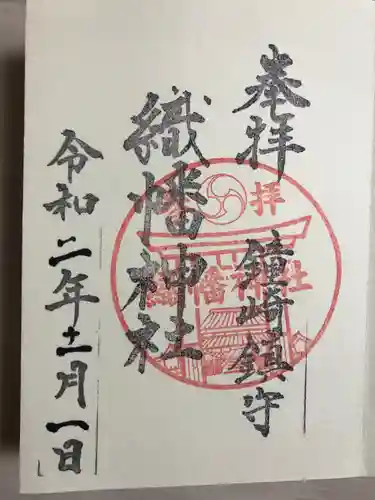 奉拝
鐘崎鎮守
織幡神社
令和二年十一月一日
拝
織幡神社